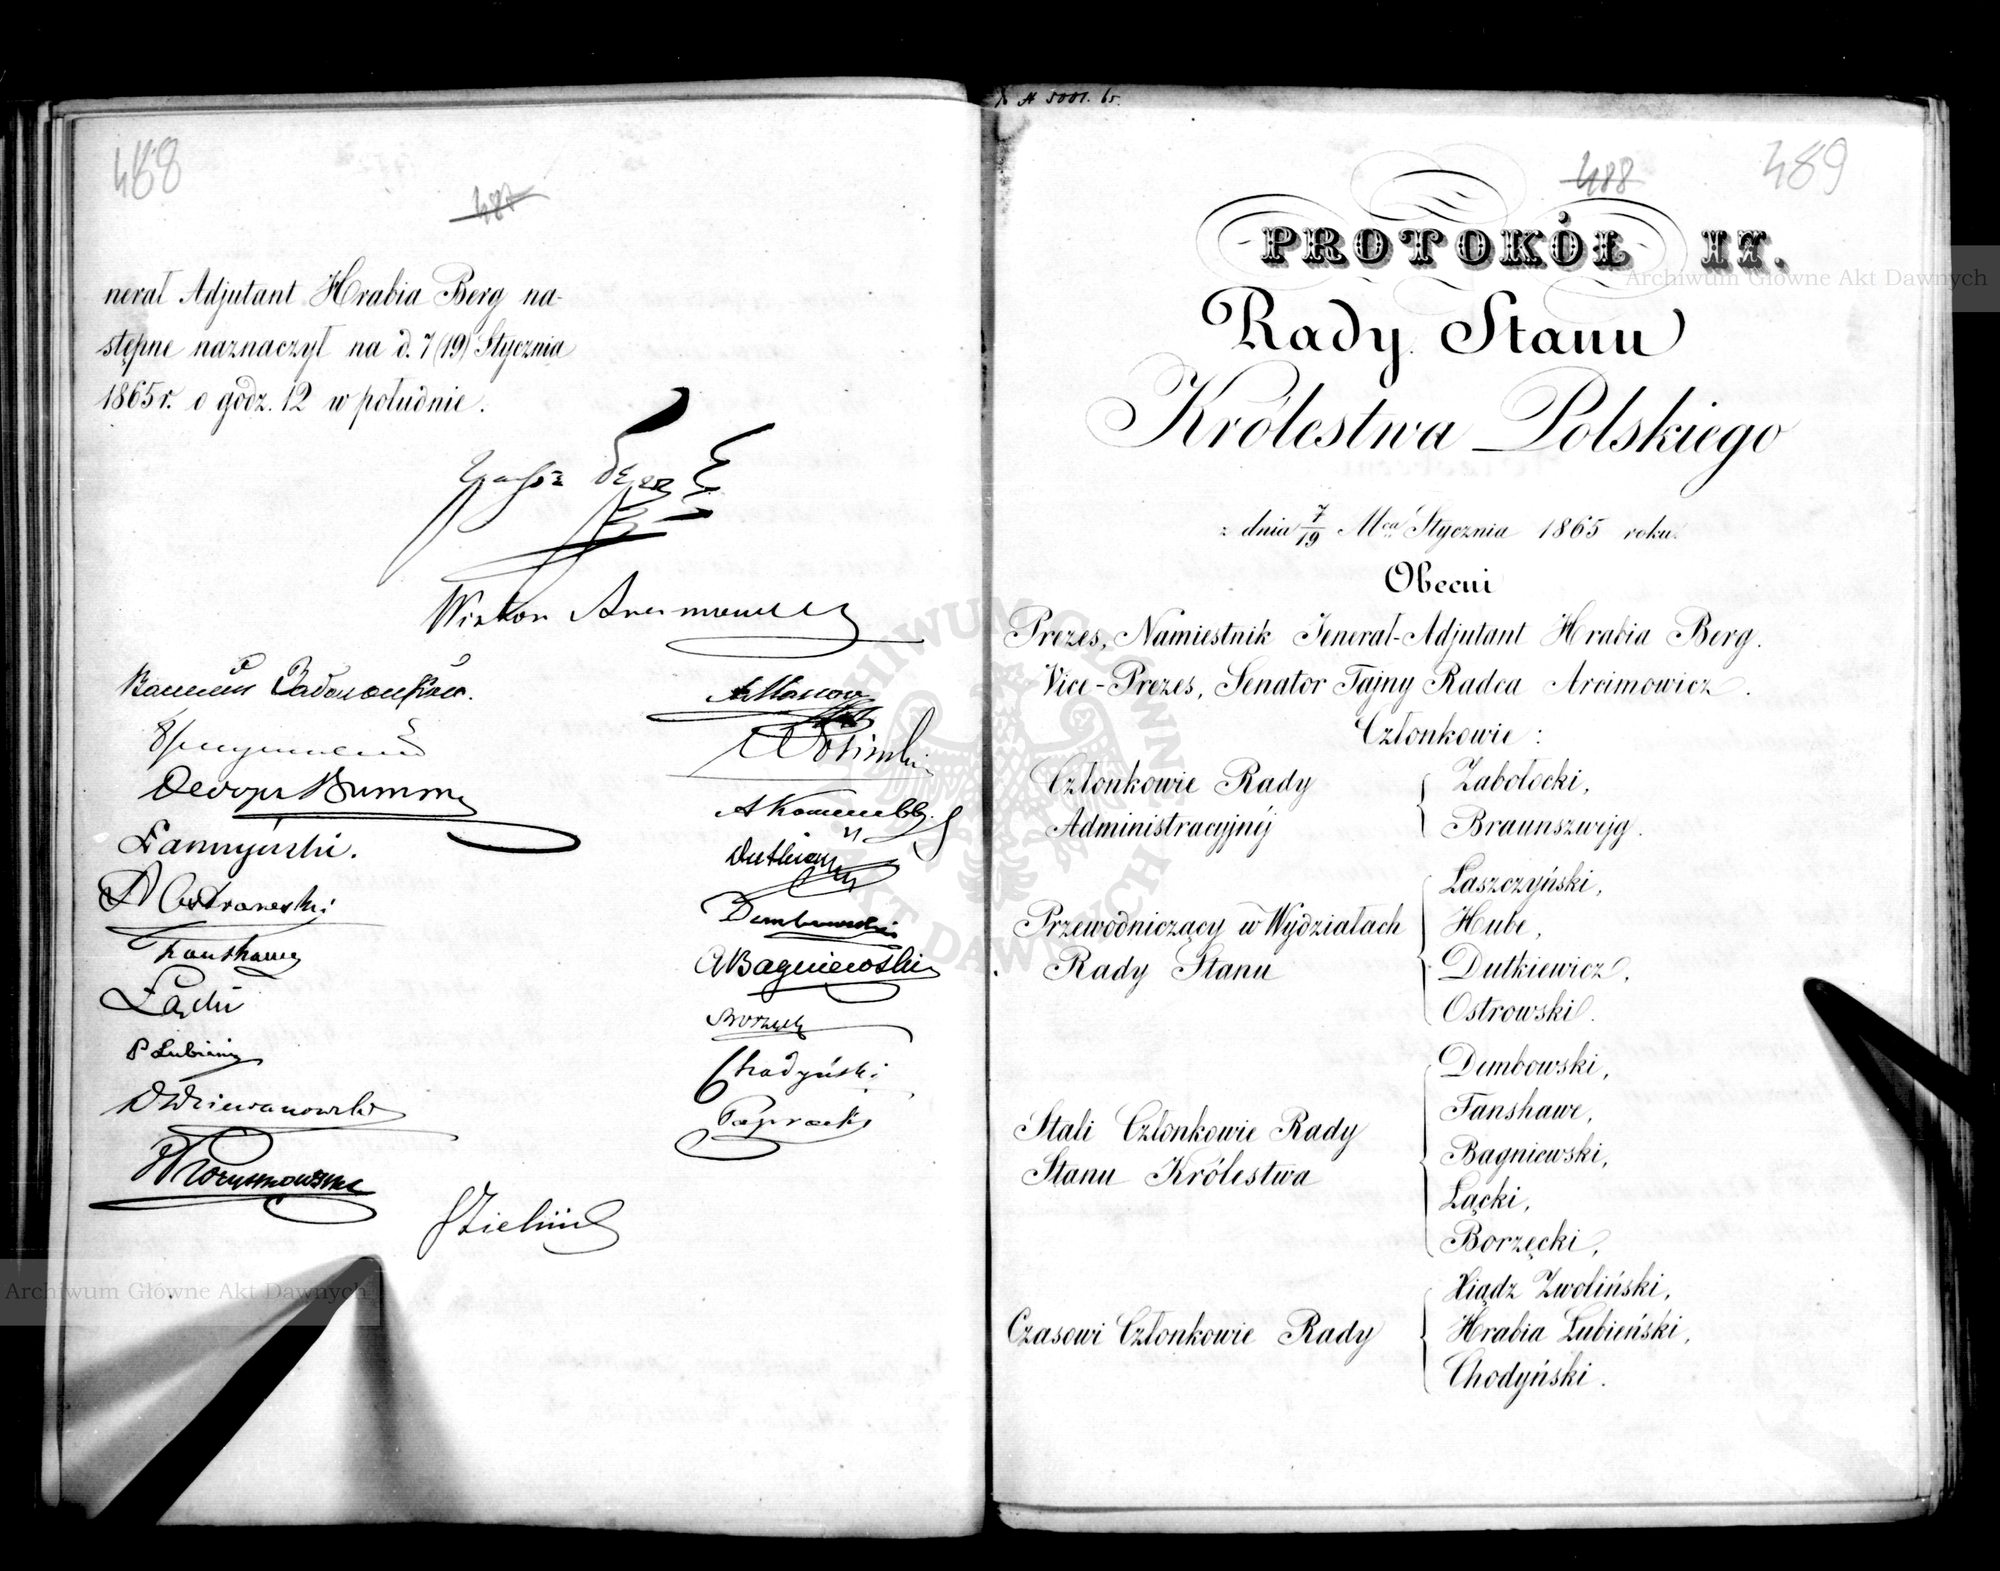 488
487
neral Adjutant Hrabia Berg na-
stępne naznaczył na d. 7 (19) Stycznia
1865 r. o godz. 12 w południe.
Wiktor
Łaszczyński.
Ostrowski
Fanshawe
Łącki
P Lubieński
Zieliński
A Kamiński
Dutkiewicz
Dembowski
ABagniewski
Borzęcki
Chodyński
Paprocki
№ 5001. 65.
488
489
PROTOKÓŁ 17.
Rady Stanu
Królestwa Polskiego
z dnia 7/19 Mca Stycznia 1865 roku.
Obecni
Prezes, Namiestnik Jenerał-Adjutant Hrabia Berg.
Vice-Prezes, Senator Tajny Radca Arcimowicz.
Członkowie:
Członkowie Rady
Administracyjnéj
Zabołocki,
Braunszwejg.
Przewodniczący w Wydziałach
Rady Stanu
Łaszczyński,
Hube,
Dutkiewicz,
Ostrowski.
Stali Członkowie Rady
Stanu Królestwa
Dembowski,
Fanshawe,
Bagniewski,
Łącki,
Borzęcki,
Czasowi Członkowie Rady
Xiądz Zwoliński,
Hrabia Łubieński,
Chodyński.
Archiwum Główne Akt Dawnych
Archiwum Główne Akt Dawnych
ARCHIWUM GŁÓWNE AKT DAWNYCH